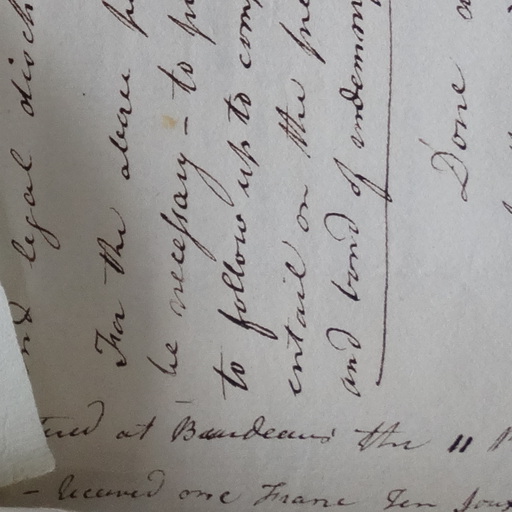 nd legal disch
For the above
be necessary – to
to follow up to com
entail on the pre
and bond of indemni
Done
at Bourdeaux the 11
– Received one Franc Ten Sous